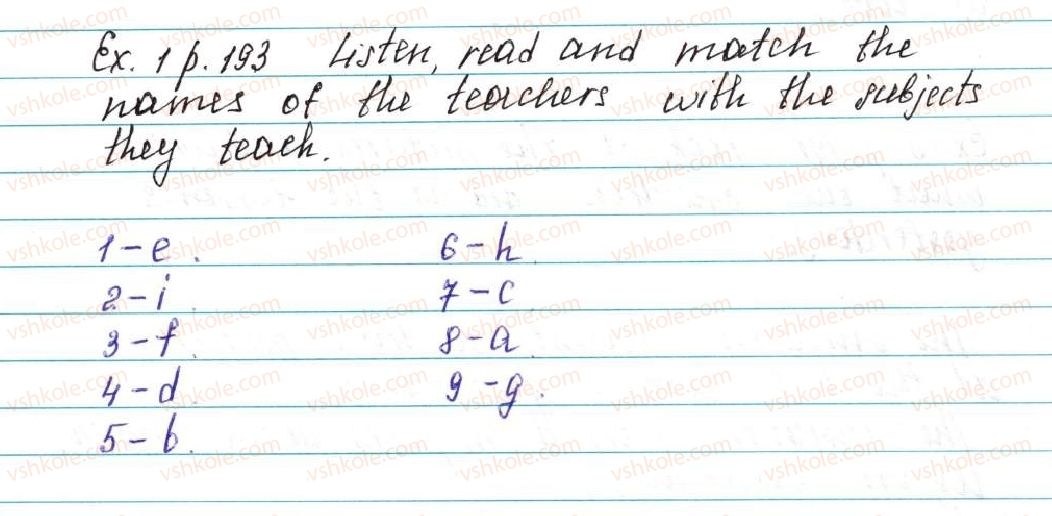 Ex. 1 p. 193 Listen, read and match the
names of the teachers with the subjects
they teach.
1 - e. 6 - h.
2 - i. 7 - c.
3 - f. 8 - a.
4 - d. 9 - g.
5 - b.
vshkole.com